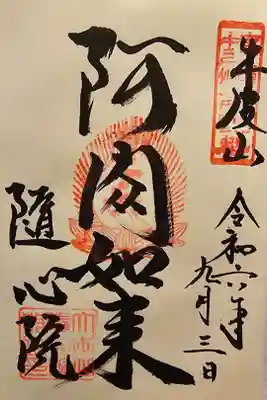 牛皮山
令和六年九月三日
阿閦如来
随心院